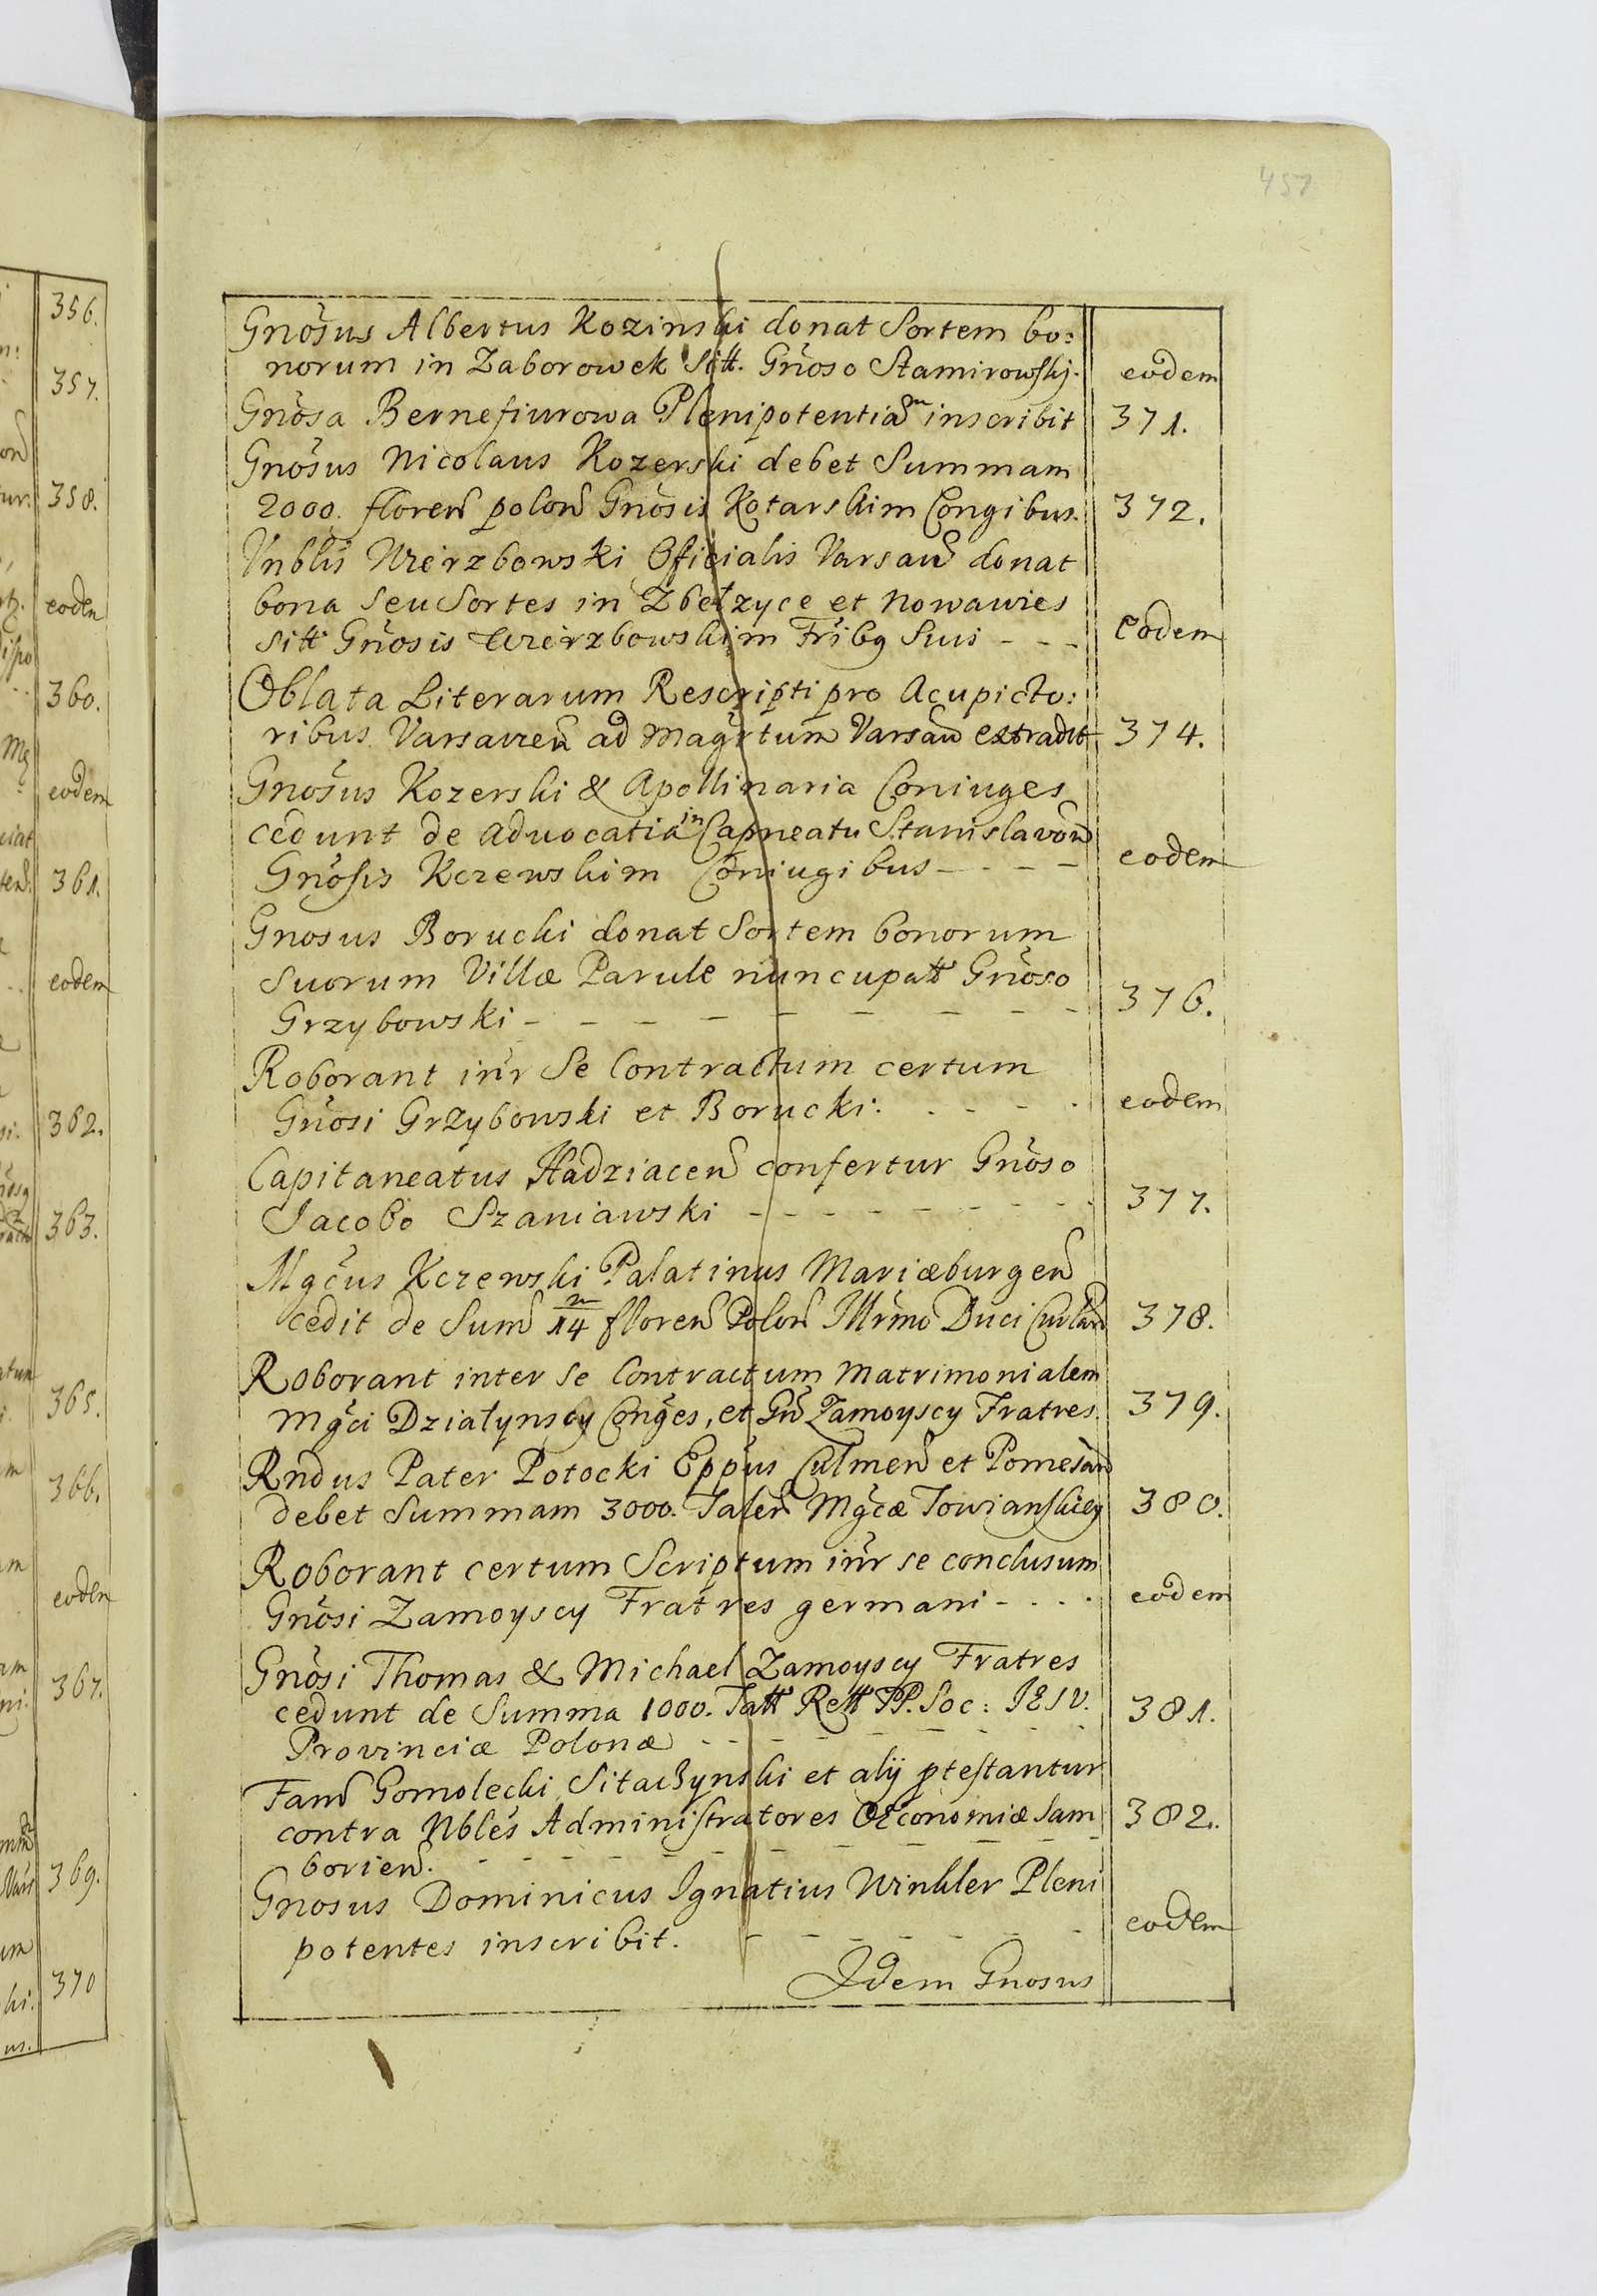 457
Gnosus Albertus Kozinski donat Sortem bo:
norum in Zaborowek Sitt. Gnoso Stamirowskj. eodem
Gnosa Bernefiurowa Plenipotentiam inscribit 371.
Gnosus Nicolaus Kozerski debet Summam
2000. floren polon Gnosis Kotarskim Congibus. 372.
Vnblis Wierzbowski Officialis Varsav donat
bona seu Sortes in Zbelzyce et Nowawies
sitt Gnosis Wierzbowskim Fribq Suis - - - Eodem
Oblata Literarum Rescripti pro Acupicto:
ribus Varsavien ad Magrtum Varsav extradit 374.
Gnosus Kozerski & Apollinaria Coniuges
cedunt de Advocatia in Capneatu Stanislavon
Gnosis Kczewskim Coniugibus - - - - eodem
Gnosus Borucki donat Sortem bonorum
suorum Villæ Parule nuncupatt Gnoso
Grzybowski - - - - - - - - 376.
Roborant intr Se Contractum certum
Gnosi Grzybowski et Borucki. - - - - eodem
Capitaneatus Hadziacen confertur Gnoso
Jacobo Szaniawski - - - - - - - - 377.
Mgcus Kczewski Palatinus Mariæburgen
cedit de Sum 14 floren Polon Illrmo Duci Curlan 378.
Roborant inter Se Contractum Matrimonialem
Mgci Dziatynscy Conges, et Gn Zamoyscy Fratres. 379.
Rndus Pater Potocki Eppus Culmen et Pomesan
debet Summam 3000. Taler Mgcæ Towianskiey 380.
Roborant certum Scriptum intr se conclusum
Gnosi Zamoyscy Fratres germani - - - - eodem
Gnosi Thomas & Michael Zamoyscy Fratres
cedunt de Summa 1000. Tatt Rett PP. Soc: IESV. 381.
Provinciæ Polonæ - - - - - - -
Fam Gomolecki Sitachynski et alij ptestantur
contra Nbles Administratores Oeconomiæ Sam 382.
borien. - - - - - - - - - -
Gnosus Dominicus Ignatius Winkler Pleni
potentes inscribit. - - - - - - eodem
Idem Gnosus
356.
357.
358.
eodem
360.
eodem
361.
eodem
362.
363.
365.
366.
eodem
367.
369.
370